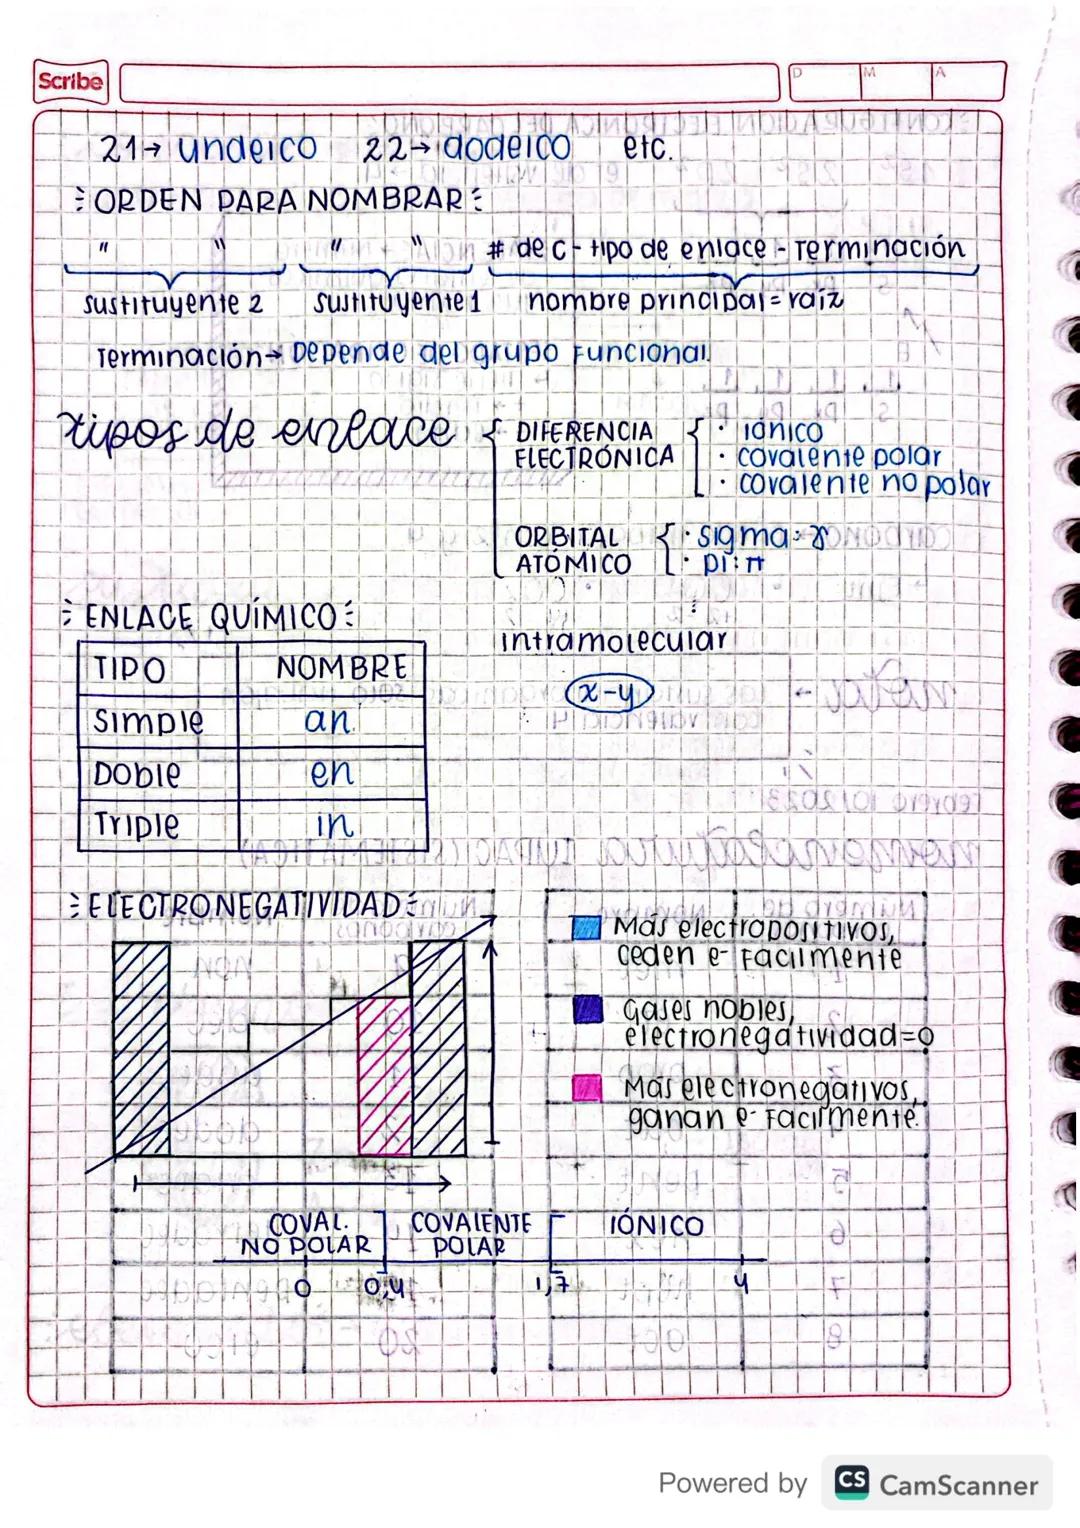 Scribe
D M A
21→ undeico 22→ dodeico etc.
ORDEN PARA NOMBRAR
" " " " # de C - tipo de enlace - Terminación
sustituyente 2 sustituyente 1 nombre principal = raíz
Terminación → Depende del grupo Funcional.
tipos de enlace
DIFERENCIA ELECTRÓNICA
· iónico
· covalente polar
· covalente no polar
ORBITAL ATÓMICO
· sigma:
· pi: π
intramolecular
x-y
ENLACE QUÍMICO
TIPO NOMBRE
Simple an
Doble en
Triple in
ELECTRONEGATIVIDAD
Más electropositivos,
ceden e- Facilmente
Gases nobles,
electronegatividad=0
Más electronegativos,
ganan e- Facilmente.
COVAL. NO POLAR
COVALENTE POLAR
IÓNICO
0 0,4 1,7 4
Powered by CS CamScanner